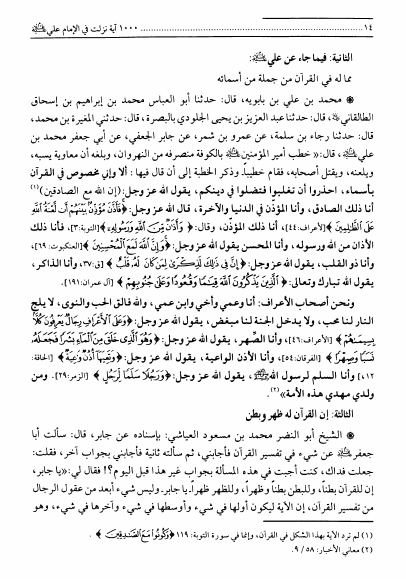 ١٤ ........ ١٠٠٠ آية نزلت في الإمام علي
الثانية: فيما جاء عن علي :
مما له في القرآن من جملة من أسمائه
محمد بن علي بن بابويه، قال: حدثنا أبو العباس محمد بن إبراهيم بن إسحاق
الطالقاني ، قال: حدثنا عبد العزيز بن يحيى الجلودي بالبصرة، قال: حدثني المغيرة بن محمد،
قال: حدثنا رجاء بن سلمة، عن عمرو بن شمر، عن جابر الجعفي، عن أبي جعفر محمد بن
علي ، قال: «خطب أمير المؤمنين بالكوفة منصرفه من النهروان، وبلغه أن معاوية يسبه،
ويلعنه، ويقتل أصحابه، فقام خطيباً. وذكر الخطبة إلى أن قال فيها: ألا وإني مخصوص في القرآن
بأسماء، احذروا أن تغلبوا فتضلوا في دينكم، يقول الله عز وجل: (إن الله مع الصادقين)(١)
أنا ذلك الصادق، وأنا المؤذن في الدنيا والآخرة، قال الله عز وجل: ﴿فَأَذَّنَ مُؤَذِّنٌ بَيْنَهُمْ أَن لَّعْنَةُ اللَّهِ
عَلَى الظَّالِمِينَ﴾ [الأعراف:٤٤] أنا ذلك المؤذن، وقال: ﴿وَأَذَانٌ مِّنَ اللَّهِ وَرَسُولِهِ﴾ [التوبة:٣]، فأنا ذلك
الأذان من الله ورسوله، وأنا المحسن يقول الله عز وجل: ﴿وَإِنَّ اللَّهَ لَمَعَ الْمُحْسِنِينَ﴾ [العنكبوت:٦٩]،
وأنا ذو القلب، يقول الله عز وجل: ﴿إِنَّ فِي ذَلِكَ لَذِكْرَى لِمَن كَانَ لَهُ قَلْبٌ﴾ [ق:٣٧]، وأنا الذاكر،
يقول الله تبارك وتعالى: ﴿الَّذِينَ يَذْكُرُونَ اللَّهَ قِيَامًا وَقُعُودًا وَعَلَى جُنُوبِهِمْ﴾ [آل عمران:١٩١].
ونحن أصحاب الأعراف: أنا وعمي وأخي وابن عمي، والله فالق الحب والنوى، لا يلج
النار لنا محب، ولا يدخل الجنة لنا مبغض، يقول الله عز وجل: ﴿وَعَلَى الْأَعْرَافِ رِجَالٌ يَعْرِفُونَ كُلًّا
بِسِيمَاهُمْ﴾ [الأعراف:٤٦]، وأنا الصهر، يقول الله عز وجل: ﴿وَهُوَ الَّذِي خَلَقَ مِنَ الْمَاءِ بَشَرًا فَجَعَلَهُ
نَسَبًا وَصِهْرًا﴾ [الفرقان:٥٤]، وأنا الأذن الواعية، يقول الله عز وجل: ﴿وَتَعِيَهَا أُذُنٌ وَاعِيَةٌ﴾ [الحاقة:
١٢]، وأنا السلم لرسول الله ، يقول الله عز وجل: ﴿وَرَجُلًا سَلَمًا لِّرَجُلٍ﴾ [الزمر:٢٩]. ومن
ولدي مهدي هذه الأمة»(٢).
الثالثة: إن القرآن له ظهر وبطن
الشيخ أبو النضر محمد بن مسعود العياشي: بإسناده عن جابر، قال: سألت أبا
جعفر عن شيء في تفسير القرآن فأجابني، ثم سألته ثانية فأجابني بجواب آخر، فقلت:
جعلت فداك، كنت أجبت في هذه المسألة بجواب غير هذا قبل اليوم؟! فقال لي: «يا جابر،
إن للقرآن بطناً، وللبطن بطناً وظهراً، وللظهر ظهراً. يا جابر. وليس شيء أبعد من عقول الرجال
من تفسير القرآن، إن الآية ليكون أولها في شيء وأوسطها في شيء وآخرها في شيء، وهو
(١) لم ترد الآية بهذا الشكل في القرآن، وإنما في سورة التوبة: ١١٩ ﴿وَكُونُوا مَعَ الصَّادِقِينَ﴾ .
(٢) معاني الأخبار: ٥٨ / ٩.